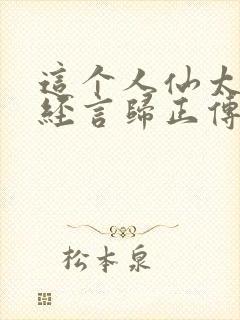 這个人仙太
經言歸正傳
松本泉